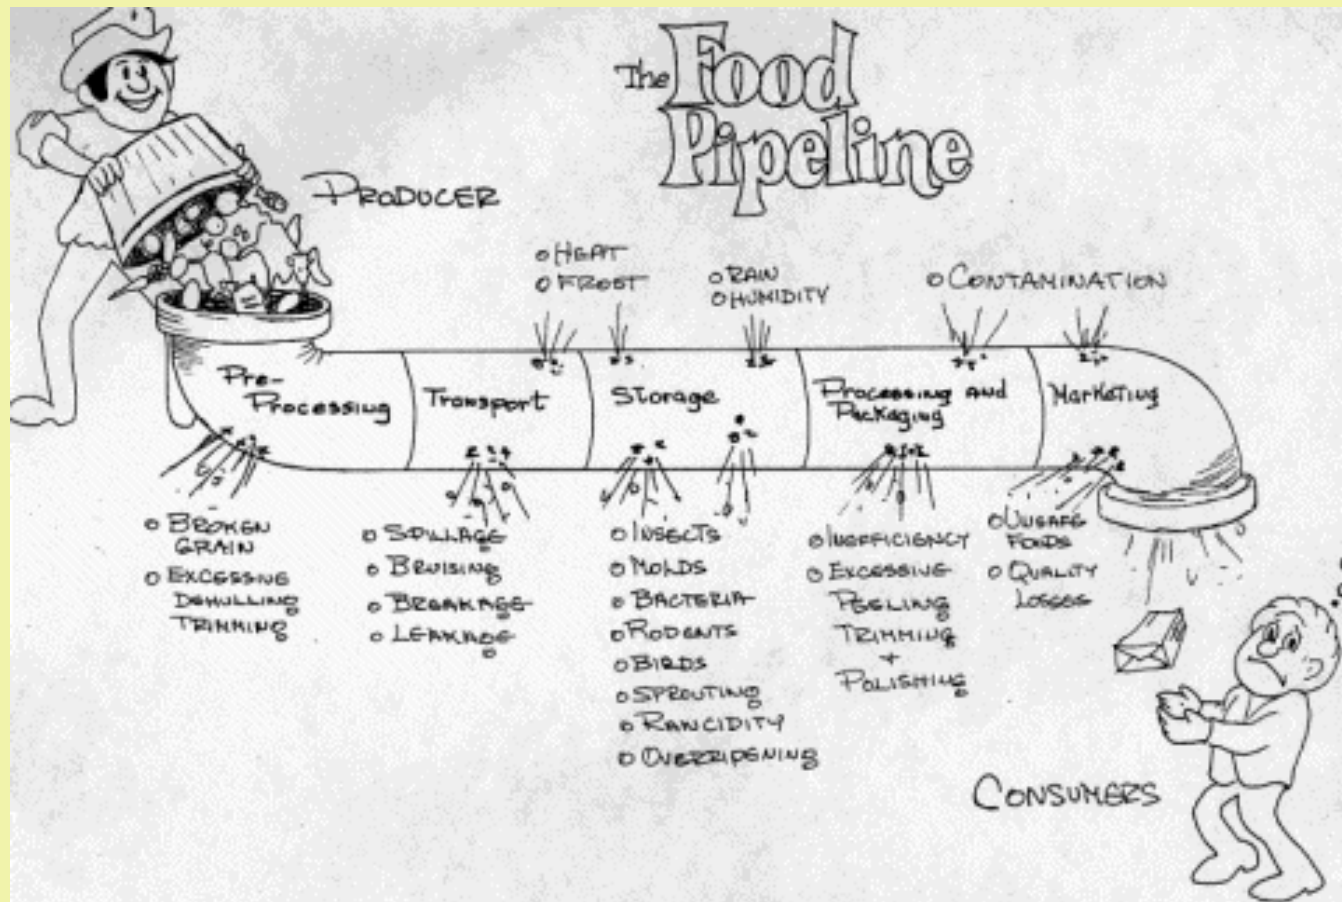 The Food
Pipeline
PRODUCER
o HEAT
o FROST
o RAIN
o HUMIDITY
o CONTAMINATION
Pre-
Processing
Transport
Storage
Processing and
Packaging
Marketing
o BROKEN
GRAIN
o EXCESSING
DEHULLING
TRIMMING
o SPILLAGE
o BRUISING
o BREAKAGE
o LEAKAGE
o INSECTS
o MOLDS
o BACTERIA
o RODENTS
o BIRDS
o SPROUTING
o RANCIDITY
o OVERRIPENING
o INEFFICIENCY
o EXCESSIVE
PEELING
TRIMMING
+
POLISHING
o UNSAFE
FOODS
o QUALITY
LOSSES
CONSUMERS